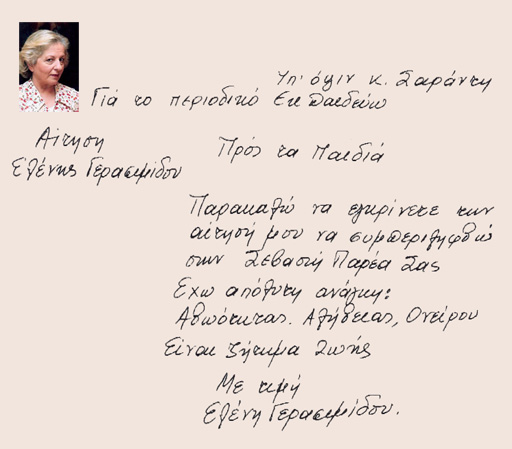 Υπ' όψιν κ. Σαράντη
Γιά το περιοδικό Εκπαιδεύω
Αίτηση
Ελένης Γερασιμίδου
Πρός τα Παιδιά
Παρακαλώ να εγκρίνετε την
αίτησή μου να συμπεριληφθώ
στην Σεβαστή Παρέα Σας
Έχω απόλυτη ανάγκη:
Αθωότητας. Αλήθειας, Ονείρου
Είναι ζήτημα Ζωής
Με τιμή
Ελένη Γερασιμίδου.